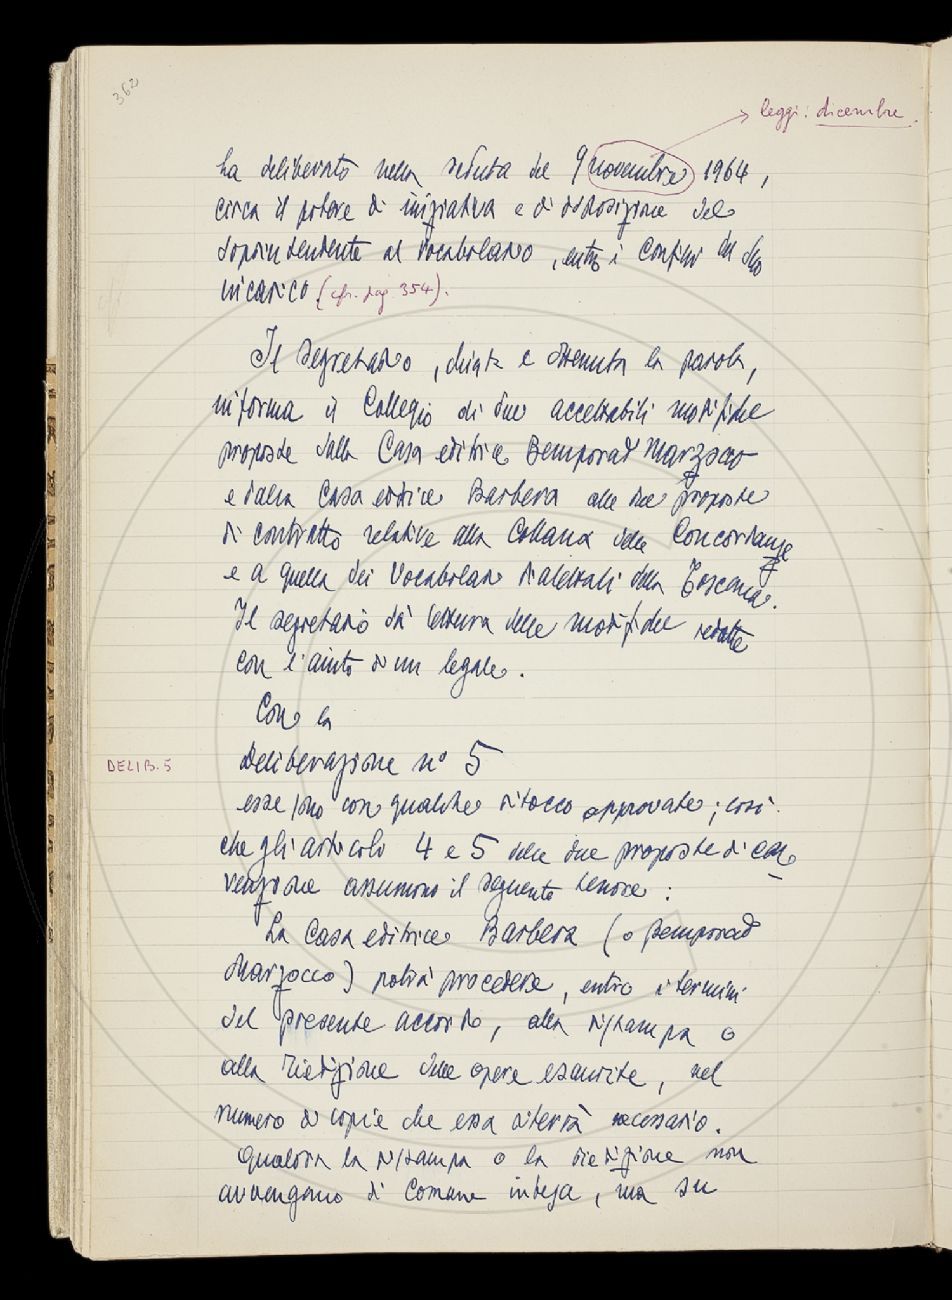 362
leggi: dicembre.
ha deliberato nella seduta del 9 novembre 1964,
circa il potere di iniziativa e di disposizione del
Soprintendente al Vocabolario, entro i confini del suo
incarico (cfr. pag. 354).
Il segretario, chiesta e ottenuta la parola,
informa il Collegio di due accettabili modifiche
proposte dalla Casa editrice Bemporad Marzocco
e dalla Casa editrice Barbera alle due proposte
di contratto relative alla Collana delle Concordanze
e a quella dei Vocabolari dialettali della Toscana.
Il segretario dà lettura delle modifiche redatte
con l'aiuto di un legale.
Con la
Deliberazione n° 5
DELIB. 5
esse sono con qualche ritocco approvate; così
che gli articoli 4 e 5 delle due proposte di con
venzione assumono il seguente tenore:
La Casa editrice Barbera (o Bemporad
Marzocco) potrà procedere, entro i termini
del presente accordo, alla ristampa o
alla riedizione delle opere esaurite, nel
numero di copie che essa riterrà necessario.
Qualora la ristampa o la riedizione non
avvengano di comune intesa, ma su